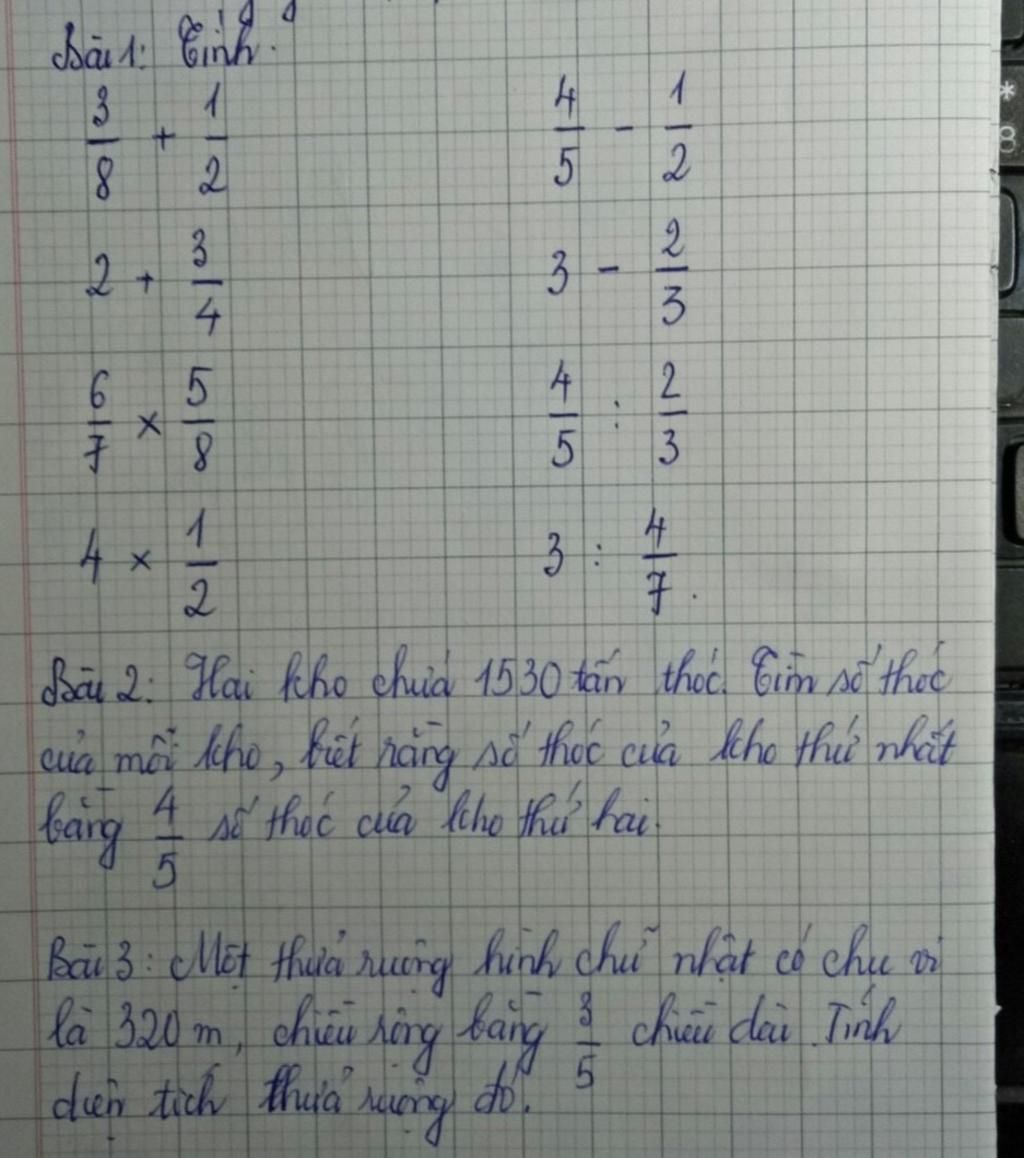 Bài 1: Tính.
3/8 + 1/2    4/5 - 1/2
2 + 3/4    3 - 2/3
6/7 × 5/8    4/5 : 2/3
4 × 1/2    3 : 4/7.
Bài 2: Hai kho chứa 1530 tấn thóc. Tìm số thóc
của mỗi kho, biết rằng số thóc của kho thứ nhất
bằng 4/5 số thóc của kho thứ hai.
Bài 3: Một thửa ruộng hình chữ nhật có chu vi
là 320 m, chiều rộng bằng 3/5 chiều dài. Tính
diện tích thửa ruộng đó.
*
8